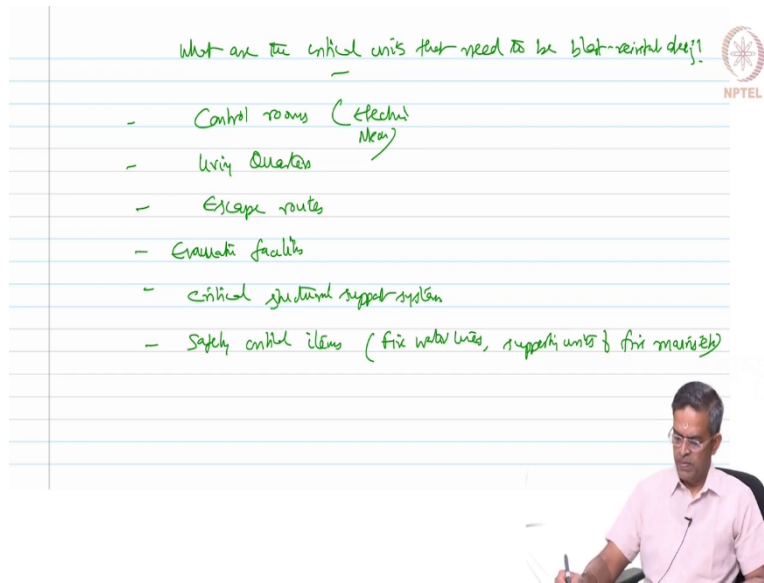 What are the critical units that need to be blast-resistant desg?
NPTEL
- Control rooms (Electric
Mech)
- Living Quarters
- Escape routes
- Evacuatn facilits
- critical structural support system
- Safety critical items (fire water lines, supporting units of fire mains etc)